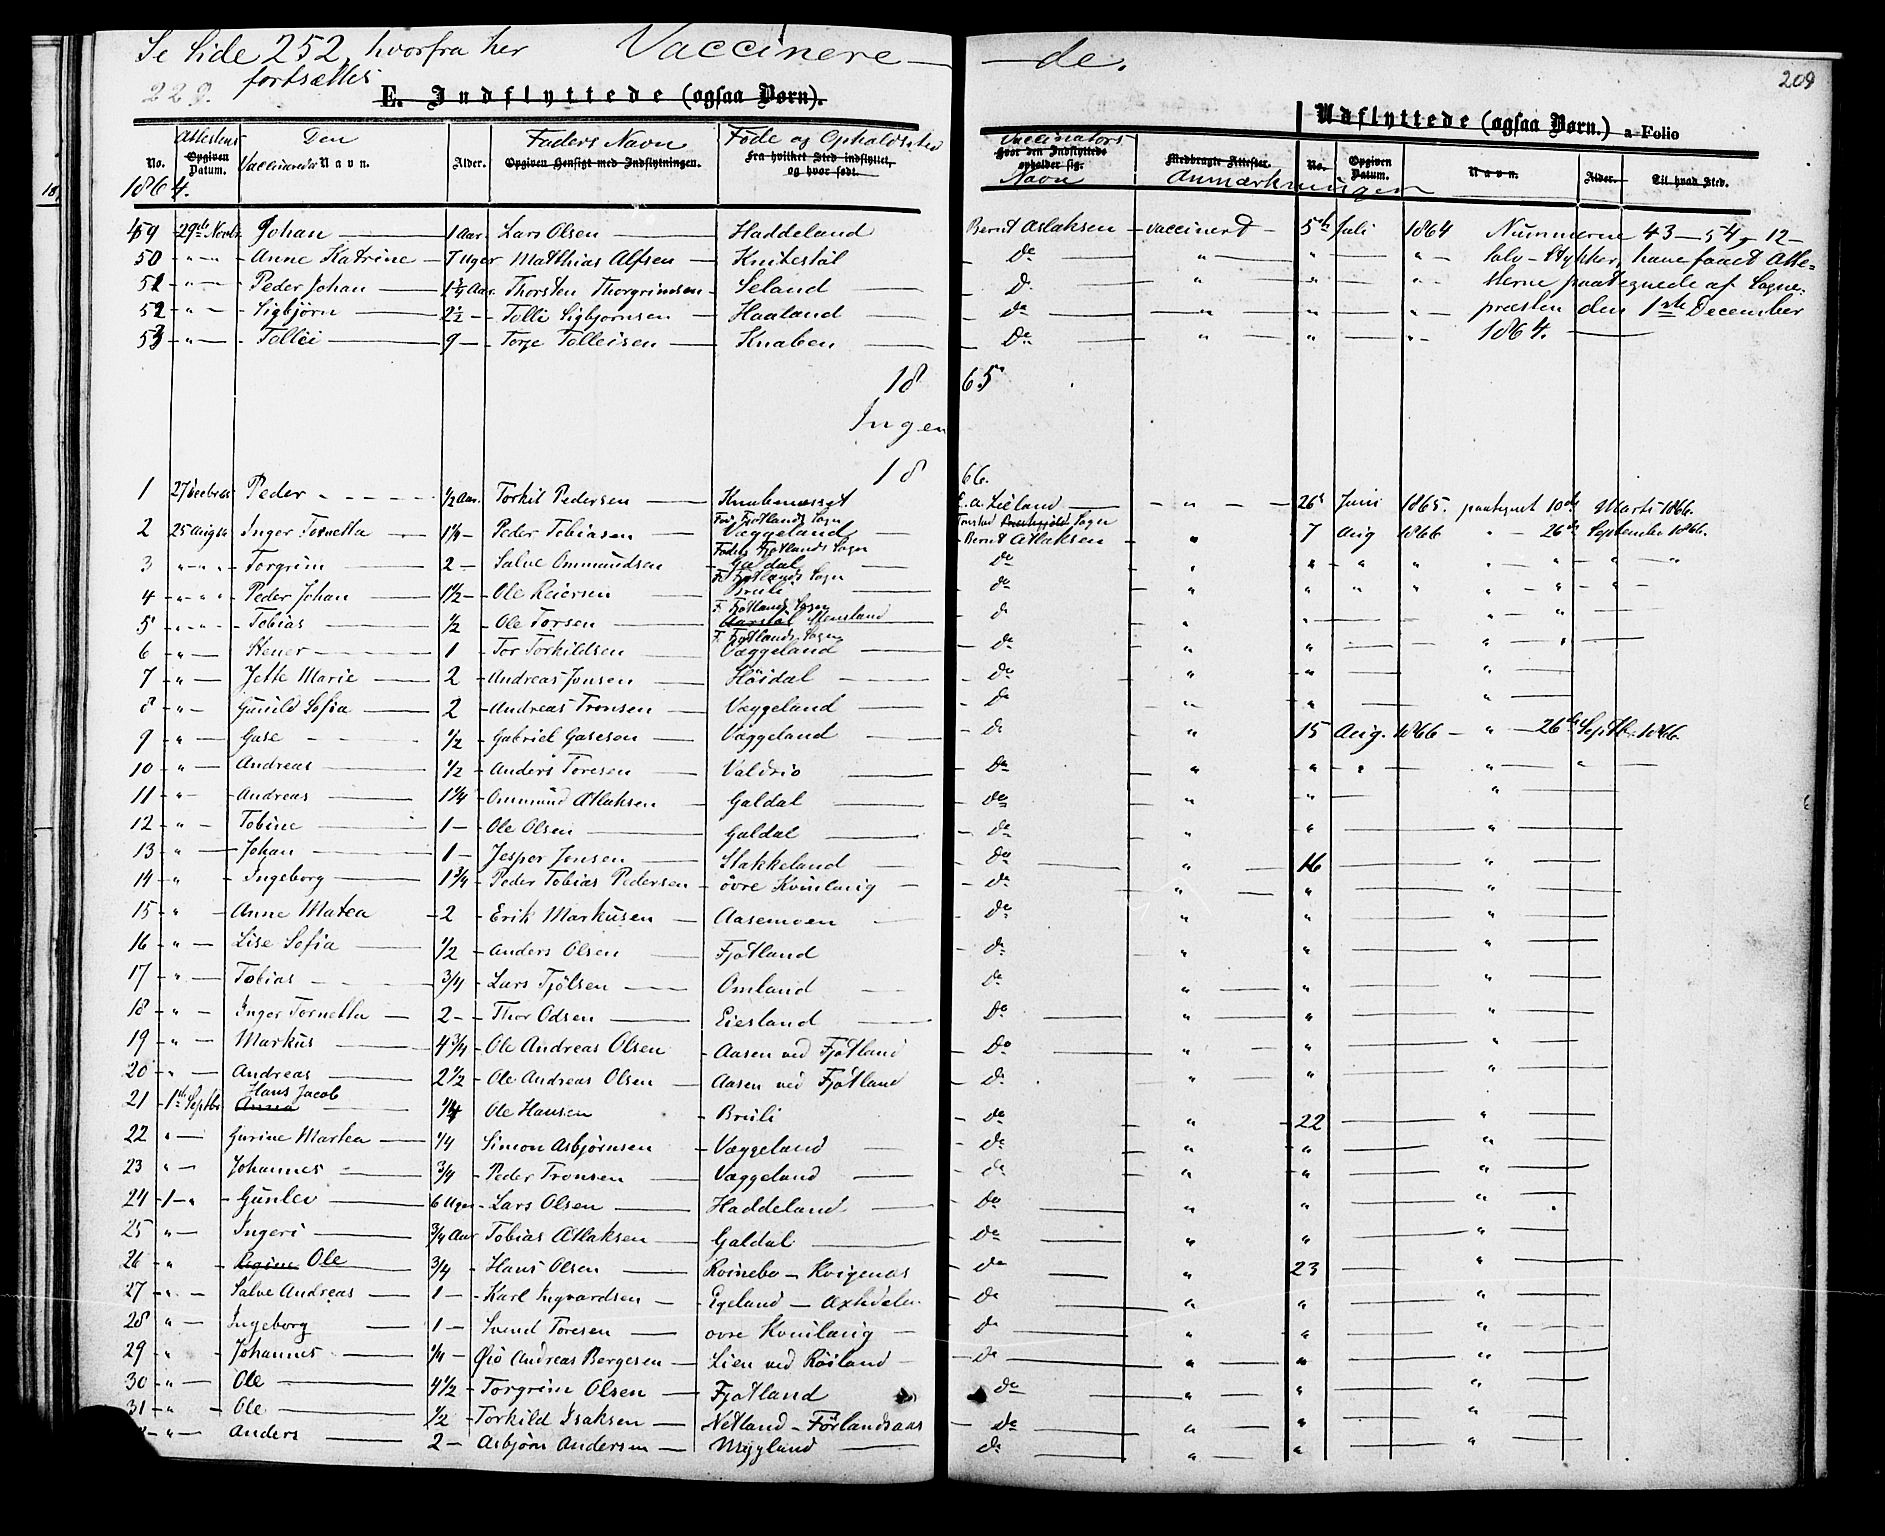 Se Side 252, hvorfra her fortsættes
Vaccinere — de.
229.
208
E. Indflyttede (ogsaa Børn).
Udflyttede (ogsaa Børn.) a Folio
No. Attestens Opgiven Datum. Den Vaccineredes Navn. Alder. Faders Navn Opgiven Hensigt med Indflytningen. Føde og Opholdssted Fra hvilket Sted indflyttet, og hvor født. Vaccinators Navn Hvor den Indflyttede opholder sig. Medbragte Attester. Anmærkninger No. Opgiven Datum. Navn. Alder. Til hvad Sted.
1864.
49 29de Novbr Johan — 1 Aar. Lars Olsen — Haddeland Bernt Aslaksen — vaccinert — 5te Juli 1864 Nummerne 43 — 54, — 12 —
50 " " — Anne Katrine — 7 Uger Matthias Alfsen — Knitestøl — do " " " — tolv — Stykker, have faaet Atte=
51 " " — Peder Johan — 1 1/4 Aar Thorsten Thorgrimsen — Seland — do " " " — sterne paategnede af Sogne=
52 " — Sigbjørn — 2 1/2 — Tolli Sigbjørnsen — Haaland — do " " " — præsten den 1ste December
53 " — Tollei — 9 — Torje Tolleisen — Knaben — do " " " — 1864.
1865
Ingen
1866.
1 27 Peder — 1/2 Aar. Torkil Pedersen — Knabenæsset E. A. Lieland — " — 26 Juni 1865. paategnet 10de Marts 1866.
Fød Fjotlands Sogn Tonstad Sogn
2 25 August Inger Tornetta 1 1/2 — Peder Tobiasen — Væggeland — Bernt Aslaksen — " 7 Aug 1866 " — 26de September 1866.
Fødte Fjotlands Sogn
3 " " " — Torgrim — 2 — Salve Ommundsen — Galdal — do " " " " " " "
F. Fjotlands Sogn
4 " " " — Peder Johan — 1 1/2 — Ole Reiersen — Bruli — do " " " " " " "
F. Fjotlands Sogn
5 " " " — Tobias — 1/2 — Ole Torsen — Aarstøl Stensland — do " " — " —
F. Fjotlands Sogn
6 " — Stener — 1 — Tor Torkildsen — Væggeland — do " " — " —
7 " — Jette Marie — 2 — Andreas Jonsen — Høidal — do " " — " —
8 " — Gunild Sofia — 2 — Andreas Tronsen — Væggeland — do " " — " —
9 " — Gase — 1/2 — Gabriel Gasesen — Væggeland — do " 15 Aug. 1866 — " — 26de Septb. 1866.
10 " — Andreas — 1/2 — Anders Toresen — Valdrio — do " " " — " — "
11 " — Andreas — 1 1/4 — Ommund Atlaksen — Galdal — do " " — " —
12 " — Tobine — 1 — Ole Olsen — Galdal — do " " — " —
13 " — Johan — 1 — Jesper Jensen — Stakkeland — do " 16 — " —
14 " — Ingeborg — 1 3/4 — Peder Tobias Pedersen — øvre Kvinlaug — do " " — " —
15 " — Anne Matea — 2 — Erik Markusen — Aasemoen — do " " — " —
16 " — Lise Sofia — 1/2 — Anders Olsen — Fjotland — do " " — " —
17 " — Tobias — 3/4 — Lars Tjølsen — Omland — do " " — " —
18 " — Inger Tornetta — 2 — Thor Odsen — Eiesland — do " " — " —
19 " — Markus — 4 3/4 — Ole Andreas Olsen — Aasen ved Fjotland — do " " — " —
20 " — Andreas — 2 1/2 — Ole Andreas Olsen — Aasen ved Fjotland — do " " — " —
21 — 1ste Septbr Anna Hans Jacob — 1/4 Ole Hansen — Bruli — do " 22 — " —
22 " — Gurine Martea — 1/4 Simon Asbjørnsen — Væggeland — do " " — " —
23 " — Johannes — 3/4 — Peder Tronsen — Væggeland — do " " — " —
24 — 1 — " — Gunlev — 6 Uger — Lars Olsen — Haddeland — do " " — " —
25 " — Ingeri — 3/4 Aar Tobias Atlaksen — Galdal — do " " — " —
26 " — Ole — 3/4 — Hans Olsen — Kvinebo — Kvigenas — do " 23 — " —
27 " — Salve Andreas — 1 — Karl Ingvardsen — Egeland — do " " — " —
28 " — Ingeborg — 1 — Svend Toresen — øvre Kvinlaug — do " " — " —
29 " — Johannes — 1/4 — Andreas Bergesen — Lien ved Røiland — do " " — " —
30 " — Ole — 4 1/2 — Torgrim Olsen — Fjotland — do " " — " —
31 " — Ole — 1/2 — Torkild Isaksen — Netland — Førlandsaas — do " " — " —
" — Anders — 2 — Asbjørn Andersen — Mygland — do " " — " —